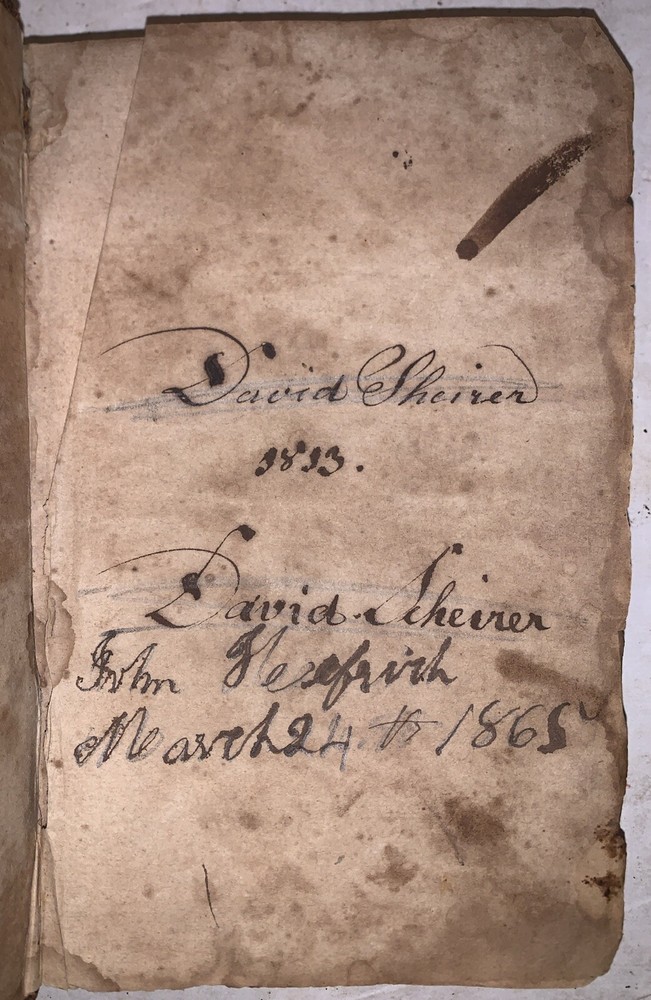 David Sheirer
1813.
David Scheirer
John Helfrich
March 24 th 1865